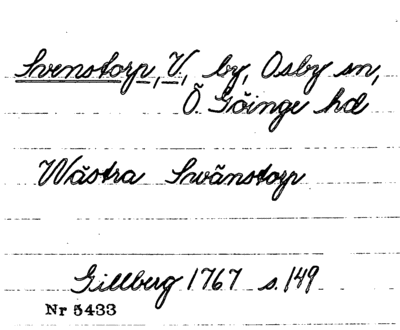 Svenstorp, V, by, Osby sn,
Ö Göinge hd
Wästra Swänstorp
Gillberg 1767 s. 149
Nr 5433